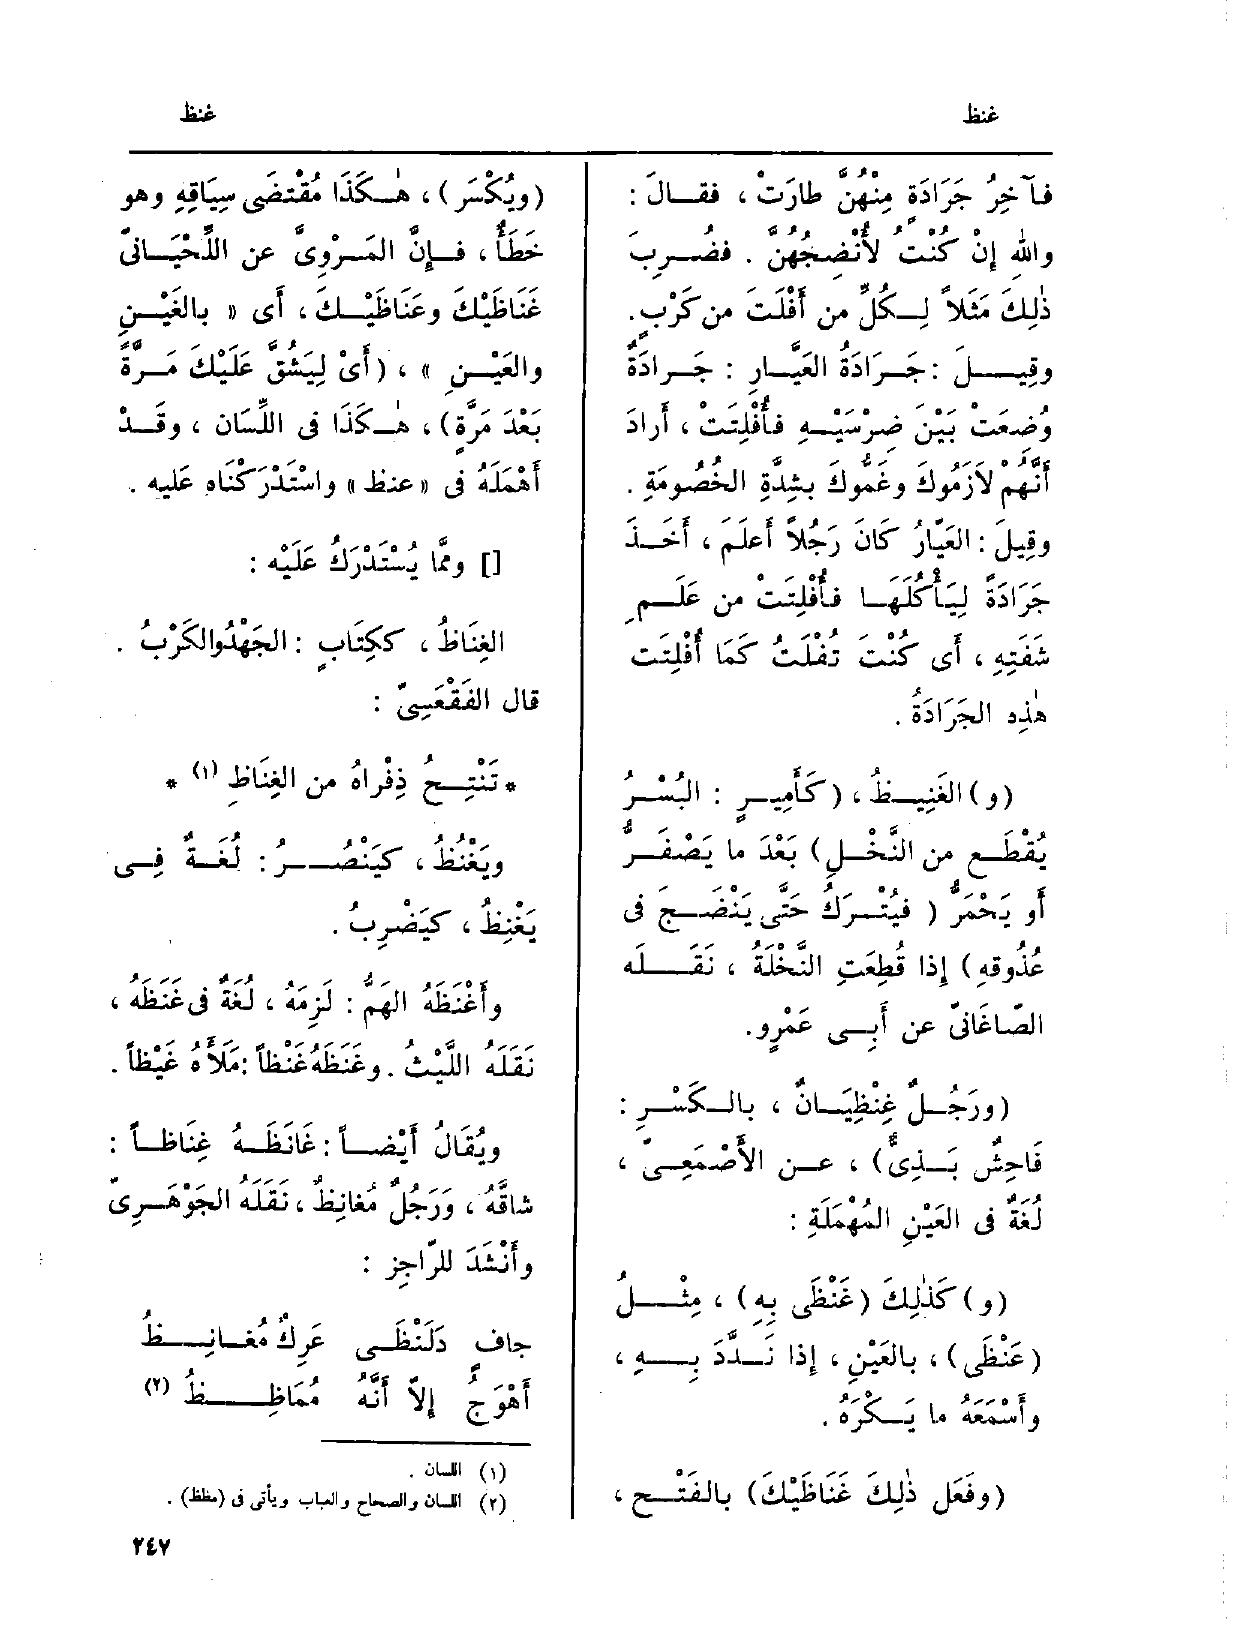 غنظ
غنظ
فآخِرُ جَرَادَةٍ مِنْهُنَّ طارَتْ ، فقالَ :
واللهِ إنْ كُنْتُ لأُنْضِجُهُنّ . فضُرِبَ
ذٰلِكَ مَثَلاً لِكُلِّ من أَفْلَتَ من كَرْبٍ.
وقِيلَ : جَرَادَةُ العَيَّارِ : جَرادَةٌ
وُضِعَتْ بَيْنَ ضِرْسَيْهِ فأُفْلِتَتْ ، أَرادَ
أَنَّهُمْ لازَمُوكَ وغَمُّوكَ بشِدَّةِ الخُصُومَةِ .
وقِيلَ : العَيّارُ كانَ رَجُلاً أَعلَمَ ، أَخَذَ
جَرَادَةً لِيَأْكُلَهَا فأُفْلِتَتْ من عَلَمِ
شَفَتِهِ ، أَى كُنْتَ تُفْلَتُ كَمَا أُفْلِتَت
هٰذِه الجَرَادَةُ .
(و) الغَنِيظُ ، (كأَمِيرٍ : البُسْرُ
يُقْطَع من النَّخْلِ) بَعْدَ ما يَصْفَرُّ
أَو يَحْمَرُّ ( فيُتْرَكُ حَتَّى يَنْضَجَ فى
عُذُوقِه) إذا قُطِعَتِ النَّخْلَةُ ، نَقَلَه
الصّاغَانىّ عن أَبِى عَمْرٍو.
(ورَجُلٌ غِنْظِيَانٌ ، بالكَسْرِ :
فَاحِشٌ بَذِىٌّ) ، عن الأَصْمَعِىّ ،
لُغَةٌ فى العَيْنِ المُهْمَلَةِ :
(و) كَذٰلِكَ (غَنْظَى بِهِ) ، مِثْلُ
(عَنْظَى) ، بالعَيْنِ ، إذا نَدَّدَ بِهِ ،
وأَسْمَعَهُ ما يَكْرَهُ .
(وفَعَل ذٰلِكَ غَنَاظَيْكَ) بالفَتْح ،
(ويُكْسَر) ، هٰكَذَا مُقْتَضَى سِيَاقِهِ وهو
خَطَأٌ ، فإنَّ المَرْوِىَّ عن اللِّحْيَانىّ
غَنَاظَيْكَ وعَنَاظَيْكَ ، أَى « بالغَيْنِ
والعَيْنِ » ، (أَىْ لِيَشُقَّ عَلَيْكَ مَرَّةً
بَعْدَ مَرَّةٍ) ، هٰكَذَا فى اللِّسَان ، وقَدْ
أَهْمَلَهُ فى «عنظ» واسْتَدْرَكْنَاه عَليه .
[] وممَّا يُسْتَدْرَكُ عَلَيْه :
الغِنَاظُ ، ككِتَابٍ : الجَهْدُوالكَرْبُ .
قال الفَقْعَسِىّ :
* تَنْتِحُ ذِفْراهُ من الغِنَاظِ (١) *
ويَغْنُظُ ، كيَنْصُرُ : لُغَةٌ فِى
يَغْنِظُ ، كيَضْرِبُ .
وأَغْنَظَهُ الهَمُّ : لَزِمَهُ ، لُغَةٌ فى غَنَظَهُ ،
نَقَلَهُ اللَّيْثُ . وغَنَظَهُ غَنْظاً : مَلأَهُ غَيْظاً .
ويُقَالُ أَيْضاً : غَانَظَهُ غِنَاظاً :
شاقَّهُ ، ورَجُلٌ مُغانِظٌ ، نَقَلَهُ الجَوْهَرِىّ
وأَنْشَدَ للرّاجِزِ :
جافٍ دَلَنْظَى عَرِكٌ مُغَانِظُ
أَهْوَجُ إلاّ أَنَّهُ مُمَاظِظُ (٢)
(١) اللسان .
(٢) اللسان والصحاح والعباب ويأتى فى (مظظ) .
٢٤٧